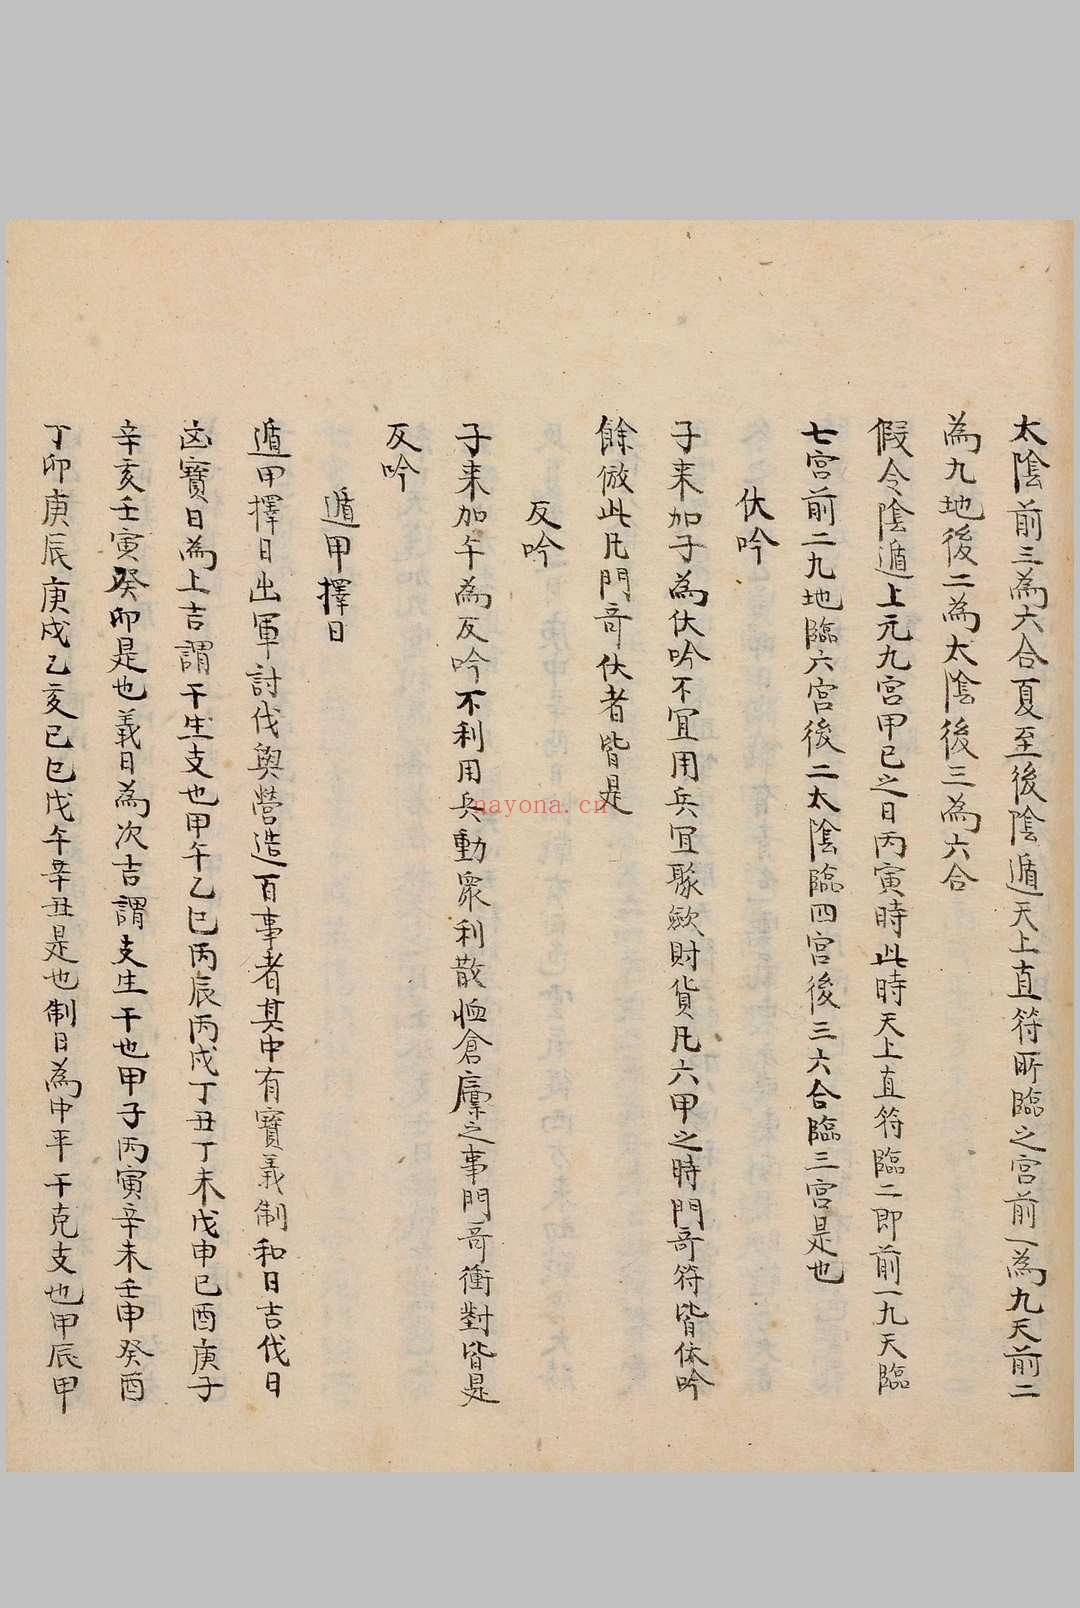 太陰前三為六合夏至後陰遁天上直符所臨之宫前一為九天前二
為九地後二為太陰後三為六合
假令陰遁上元九宫甲己之日丙寅時此時天上直符臨二即前一九天臨
七宫前二九地臨六宫後二太陰臨四宫後三六合臨三宫是也
伏吟
子来加子為伏吟不宜用兵宜聚歛財貨凡六甲之時門竒符皆伏吟
餘倣此凡門竒伏者皆是
反吟
子来加午為反吟不利用兵動衆利散恤倉廩之事門竒衝對皆是
反吟
遁甲擇日
遁甲擇日出軍討伐與營造百事者其中有寳義制和日吉伐日
凶寳日為上吉謂干生支也甲午乙巳丙辰丙戌丁丑丁未戊申己酉庚子
辛亥壬寅癸卯是也義日為次吉謂支生干也甲子丙寅辛未壬申癸酉
丁卯庚辰庚戌乙亥己巳戊午辛丑是也制日為中平干克支也甲辰甲
nayona.cn